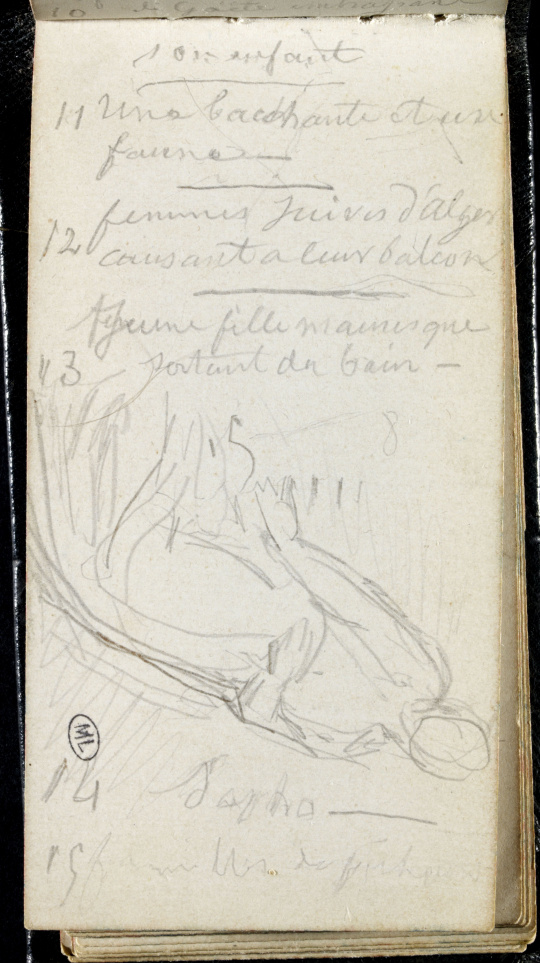 son enfant
11 Une bacchante et un
faune —
12 femmes juives d'alger
causant a leur balcon
jeune fille mauresque
13 sortant du bain —
5 8
ML
14 Sapho —
15 familles de